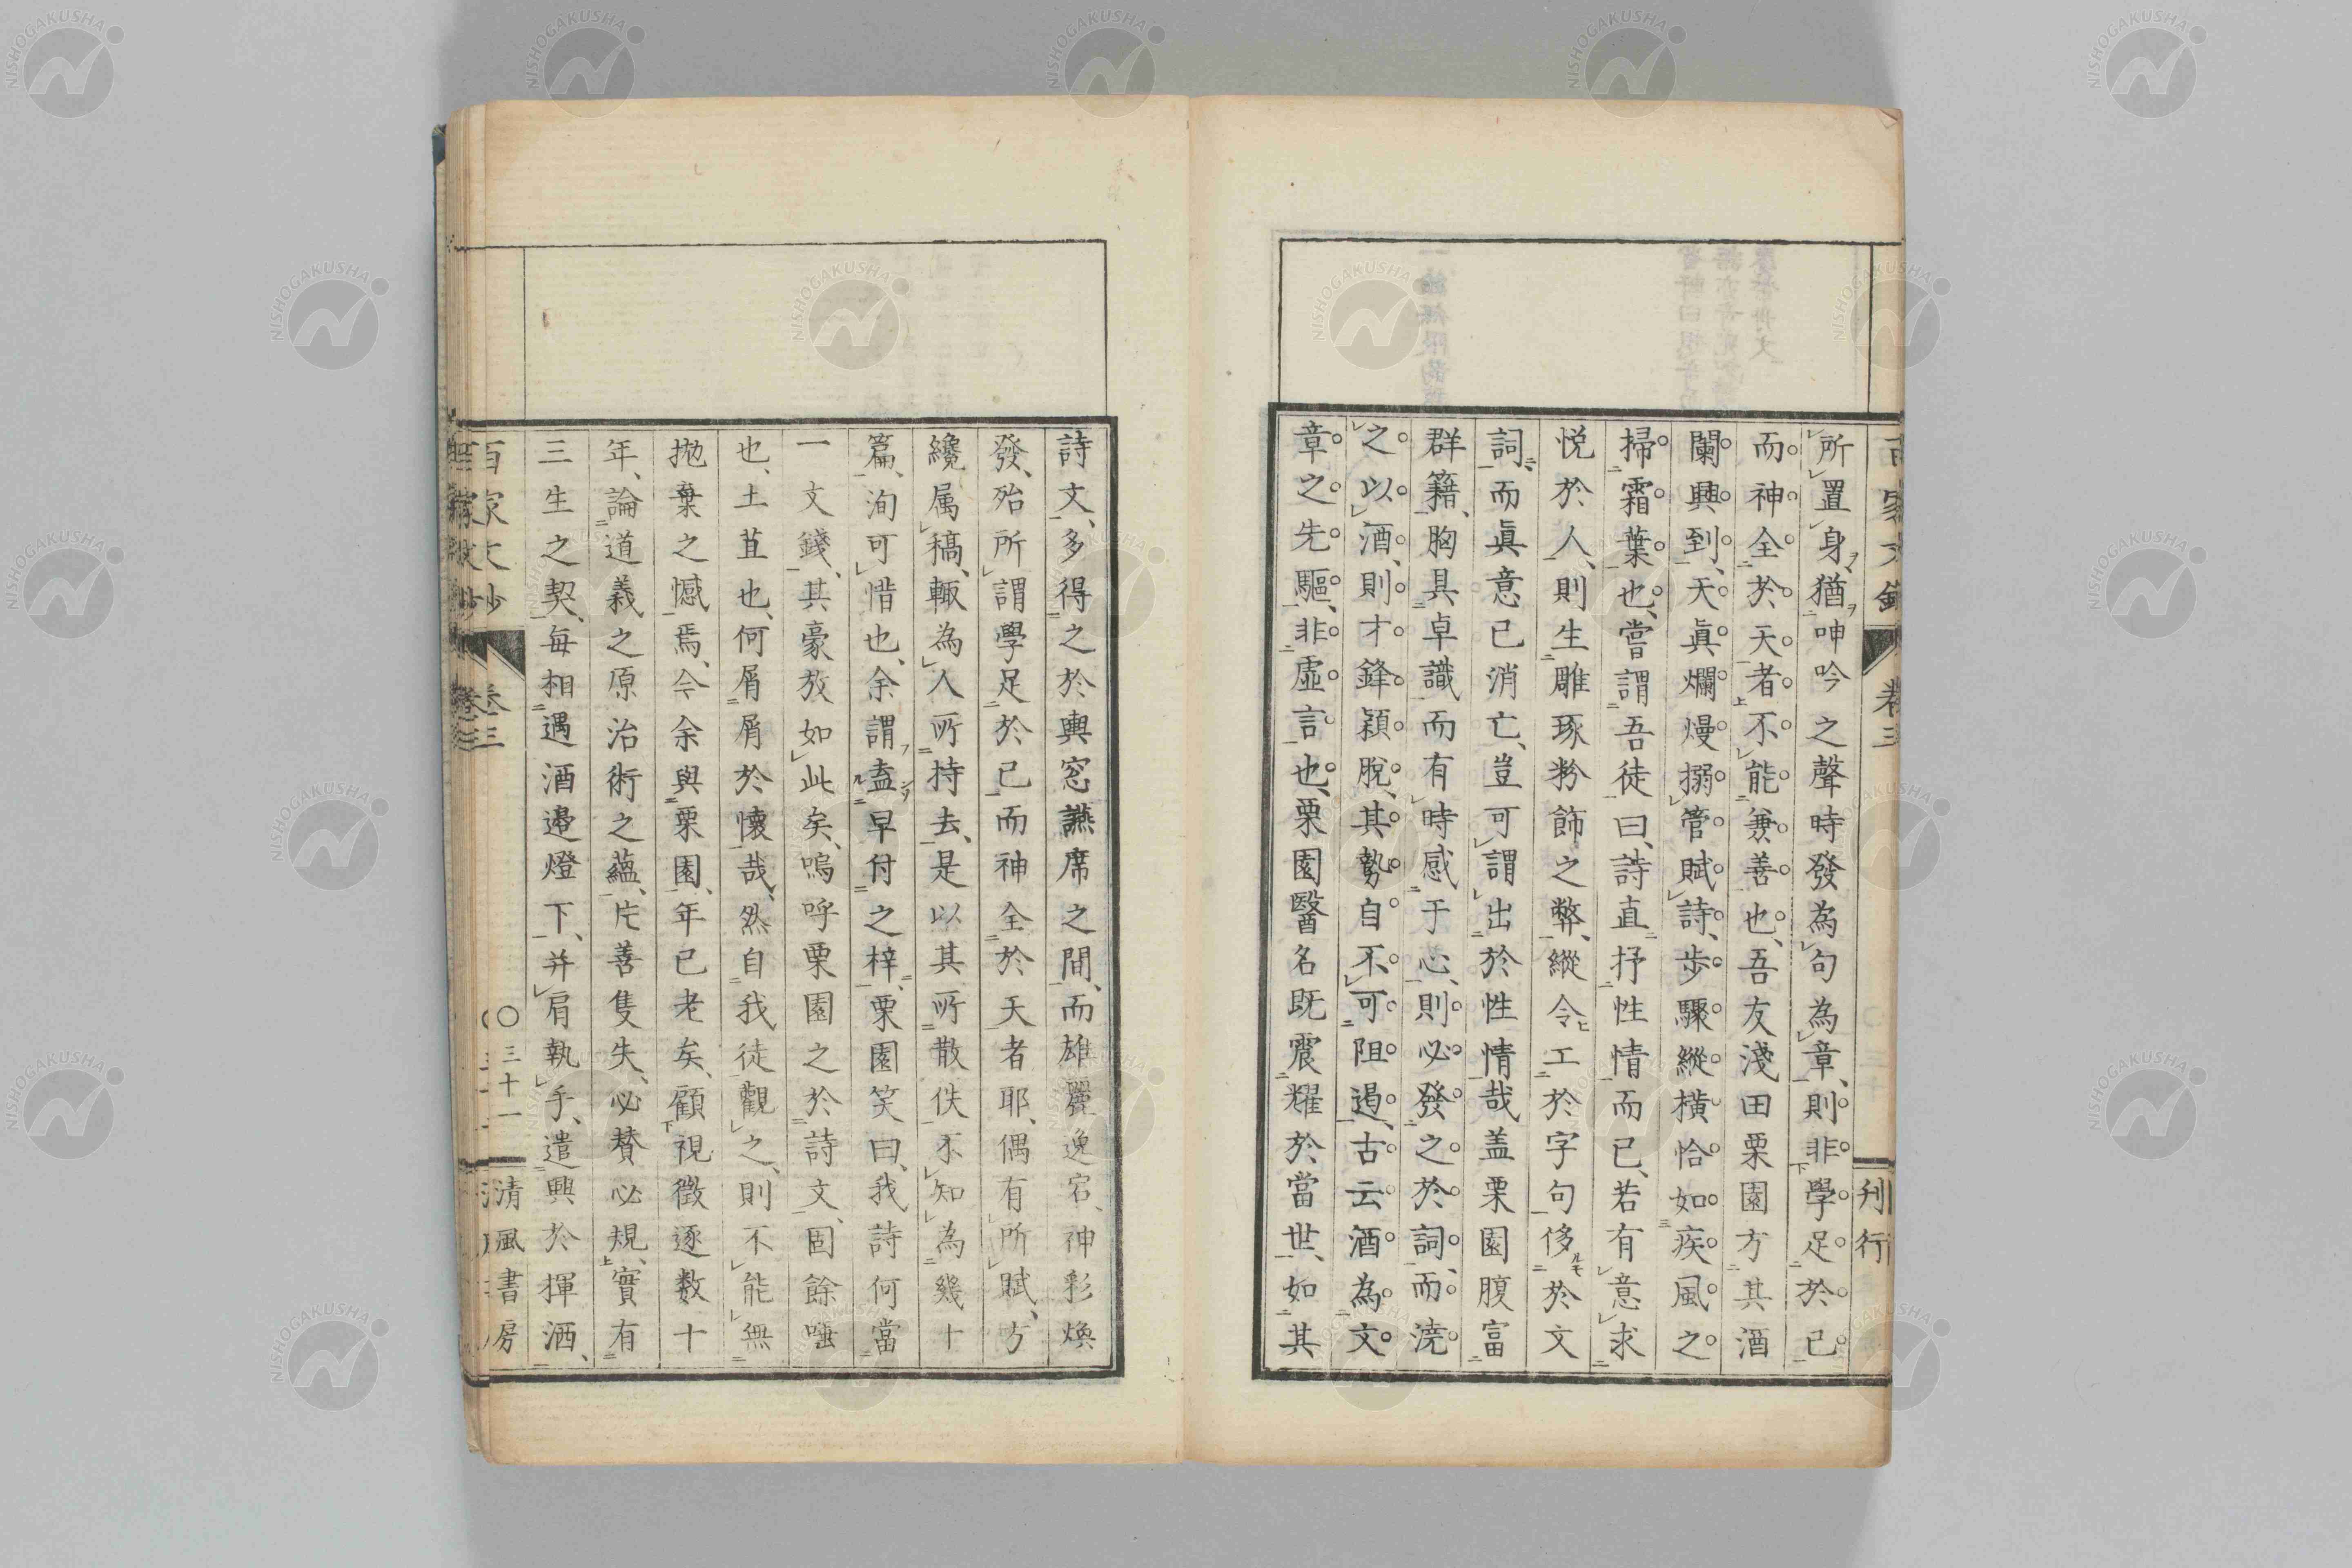 所置身、猶呻吟之聲時發為句為章、則非學足於已
而神全於天者不能兼善也、吾友淺田栗園方其酒
闌興到、天眞爛熳搦管賦詩、步驟縱橫恰如疾風之
掃霜葉也、嘗謂吾徒曰、詩直抒性情而已、若有意求
悦於人、則生雕琢粉飾之弊、縱令工於字句侈於文
詞、而眞意已消亡、豈可謂出於性情哉盖栗園腹富
群籍、胸具卓識而有時感于心、則必發之於詞、而澆
之以酒、則才鋒穎脫、其勢自不可阻遏、古云酒為文
章之先驅、非虛言也、栗園醫名既震耀於當世、如其
詩文、多得之於輿窓讌席之間、而雄麗逸宕、神彩煥
發、殆所謂學足於已而神全於天者耶、偶有所賦、方
纔属稿、輙為人所持去、是以其所散佚不知為幾十
篇、洵可惜也、余謂盍早付之梓、栗園笑曰、我詩何當
一文錢、其豪放如此矣、嗚呼栗園之於詩文、固餘唾
也、土苴也、何屑屑於懷哉、然自我徒觀之、則不能無
拋棄之憾焉、今余與栗園、年已老矣、顧視徵逐数十
年、論道義之原治術之蘊、片善隻失、必賛必規、實有
三生之契、每相遇酒邉燈下、并肩執手、遣興於揮洒、
百家文鈔 卷三 〇三十一 清風書房
卷三
刋行